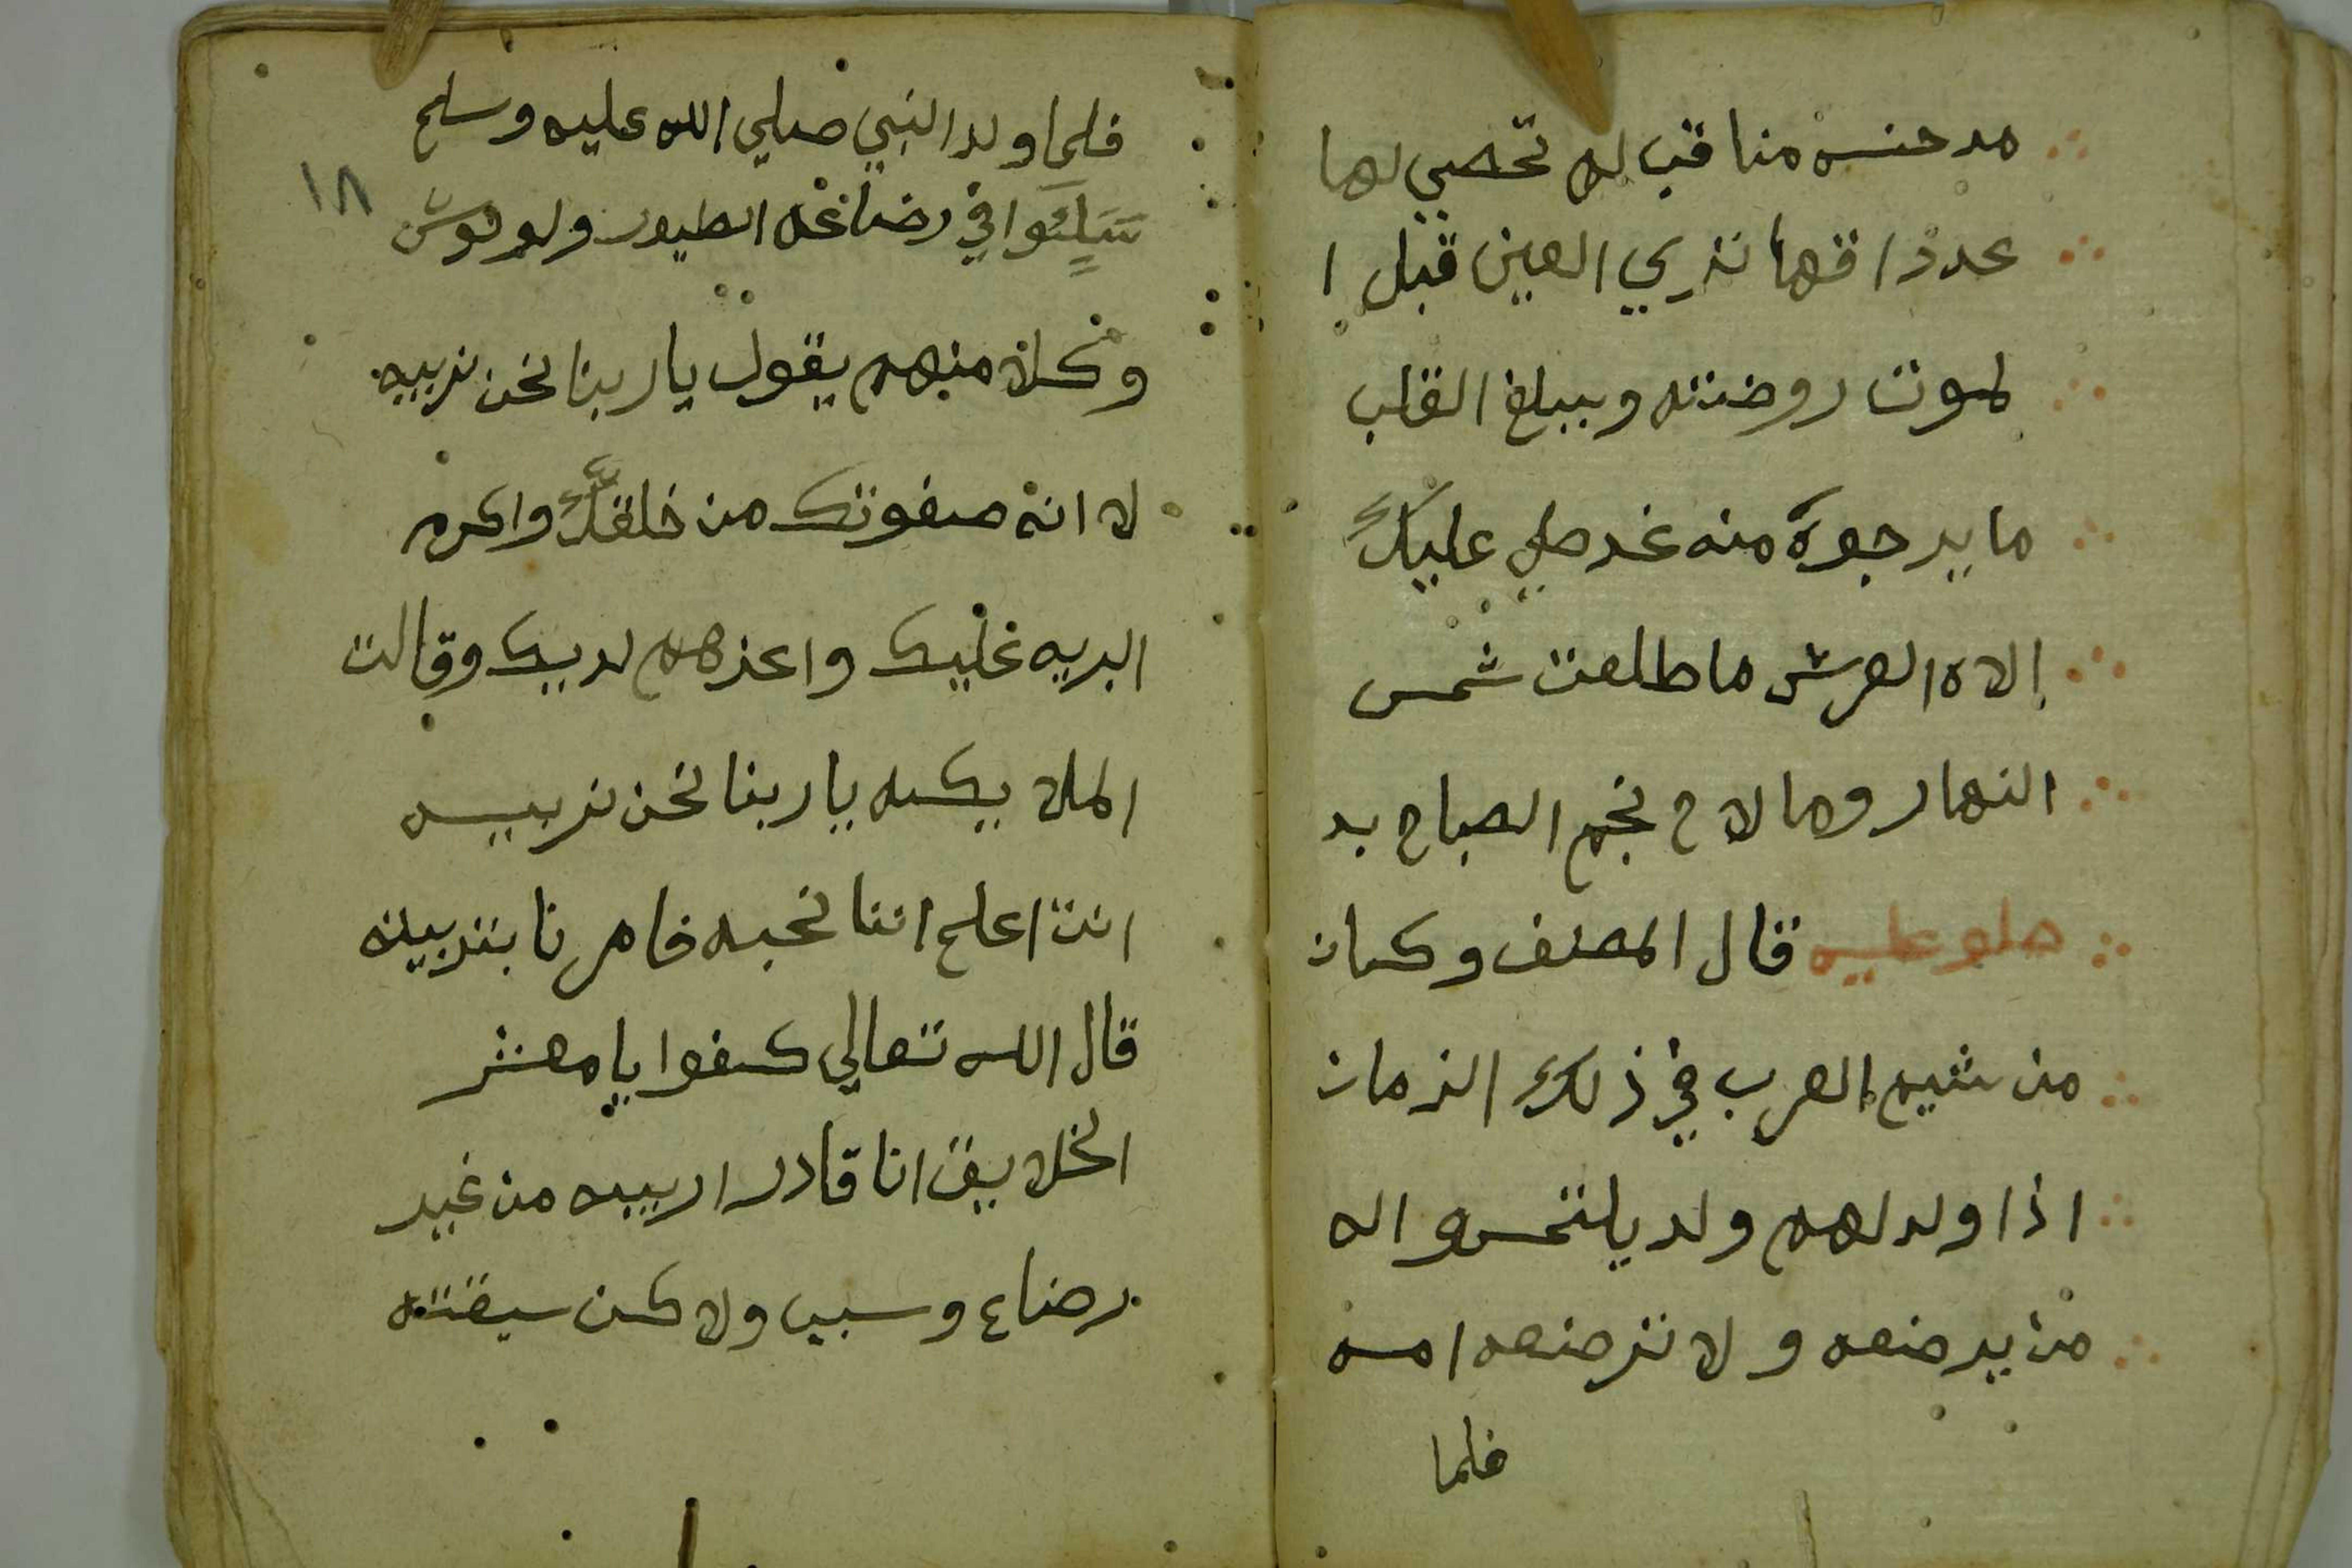 مدحنه مناقب لا تحصي لها
عددا فها نري العين قبل ا
لموت روضته ويبلغ القلب
ما يرجوه منه غد صلي عليك
إلاه العرش ما طلعت شمس
النهار وما لاح نجم الصباح بد
صلو عليه قال المصنف وكان
من شيم العرب في ذلك الزمان
اذا ولد لهم ولد يلتمسوا له
من يرضعه ولا ترضعه امه
فلما
١٨
فلما ولد النبي صلي الله عليه وسلم
في رضاعه الطيور ولوحوش
وكلا منهم يقول يا ربنا نحن نربيه
لا انه صفوتك من خلقك واكرم
البريه عليك واعزهم لديك وقالت
الملا يكه يا ربنا نحن نربيه
انت اعلم اننا نحبه فامرنا بتربيته
قال الله تعالي كفوا يا معشر
الخلايق انا قادر اربيه من غير
رضاع وسبب ولا كن سبقت